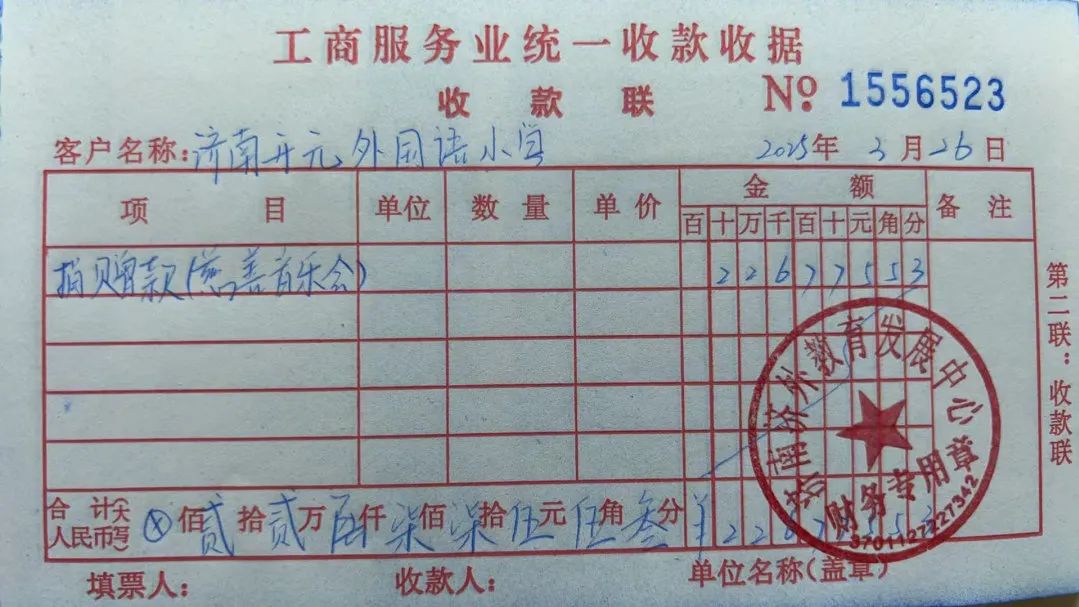 工商服务业统一收款收据
收款联 № 1556523
客户名称：济南开元外国语小学 2025年3月26日
项目 单位 数量 单价 金额 备注
百十万千百十元角分
捐赠款(慈善音乐会) 22677553
合计(大写)人民币 ⊗佰贰拾贰万陆仟柒佰柒拾伍元伍角叁分 ¥22677553
填票人： 收款人： 单位名称(盖章)
第二联：收款联
济南济外教育发展中心
财务专用章